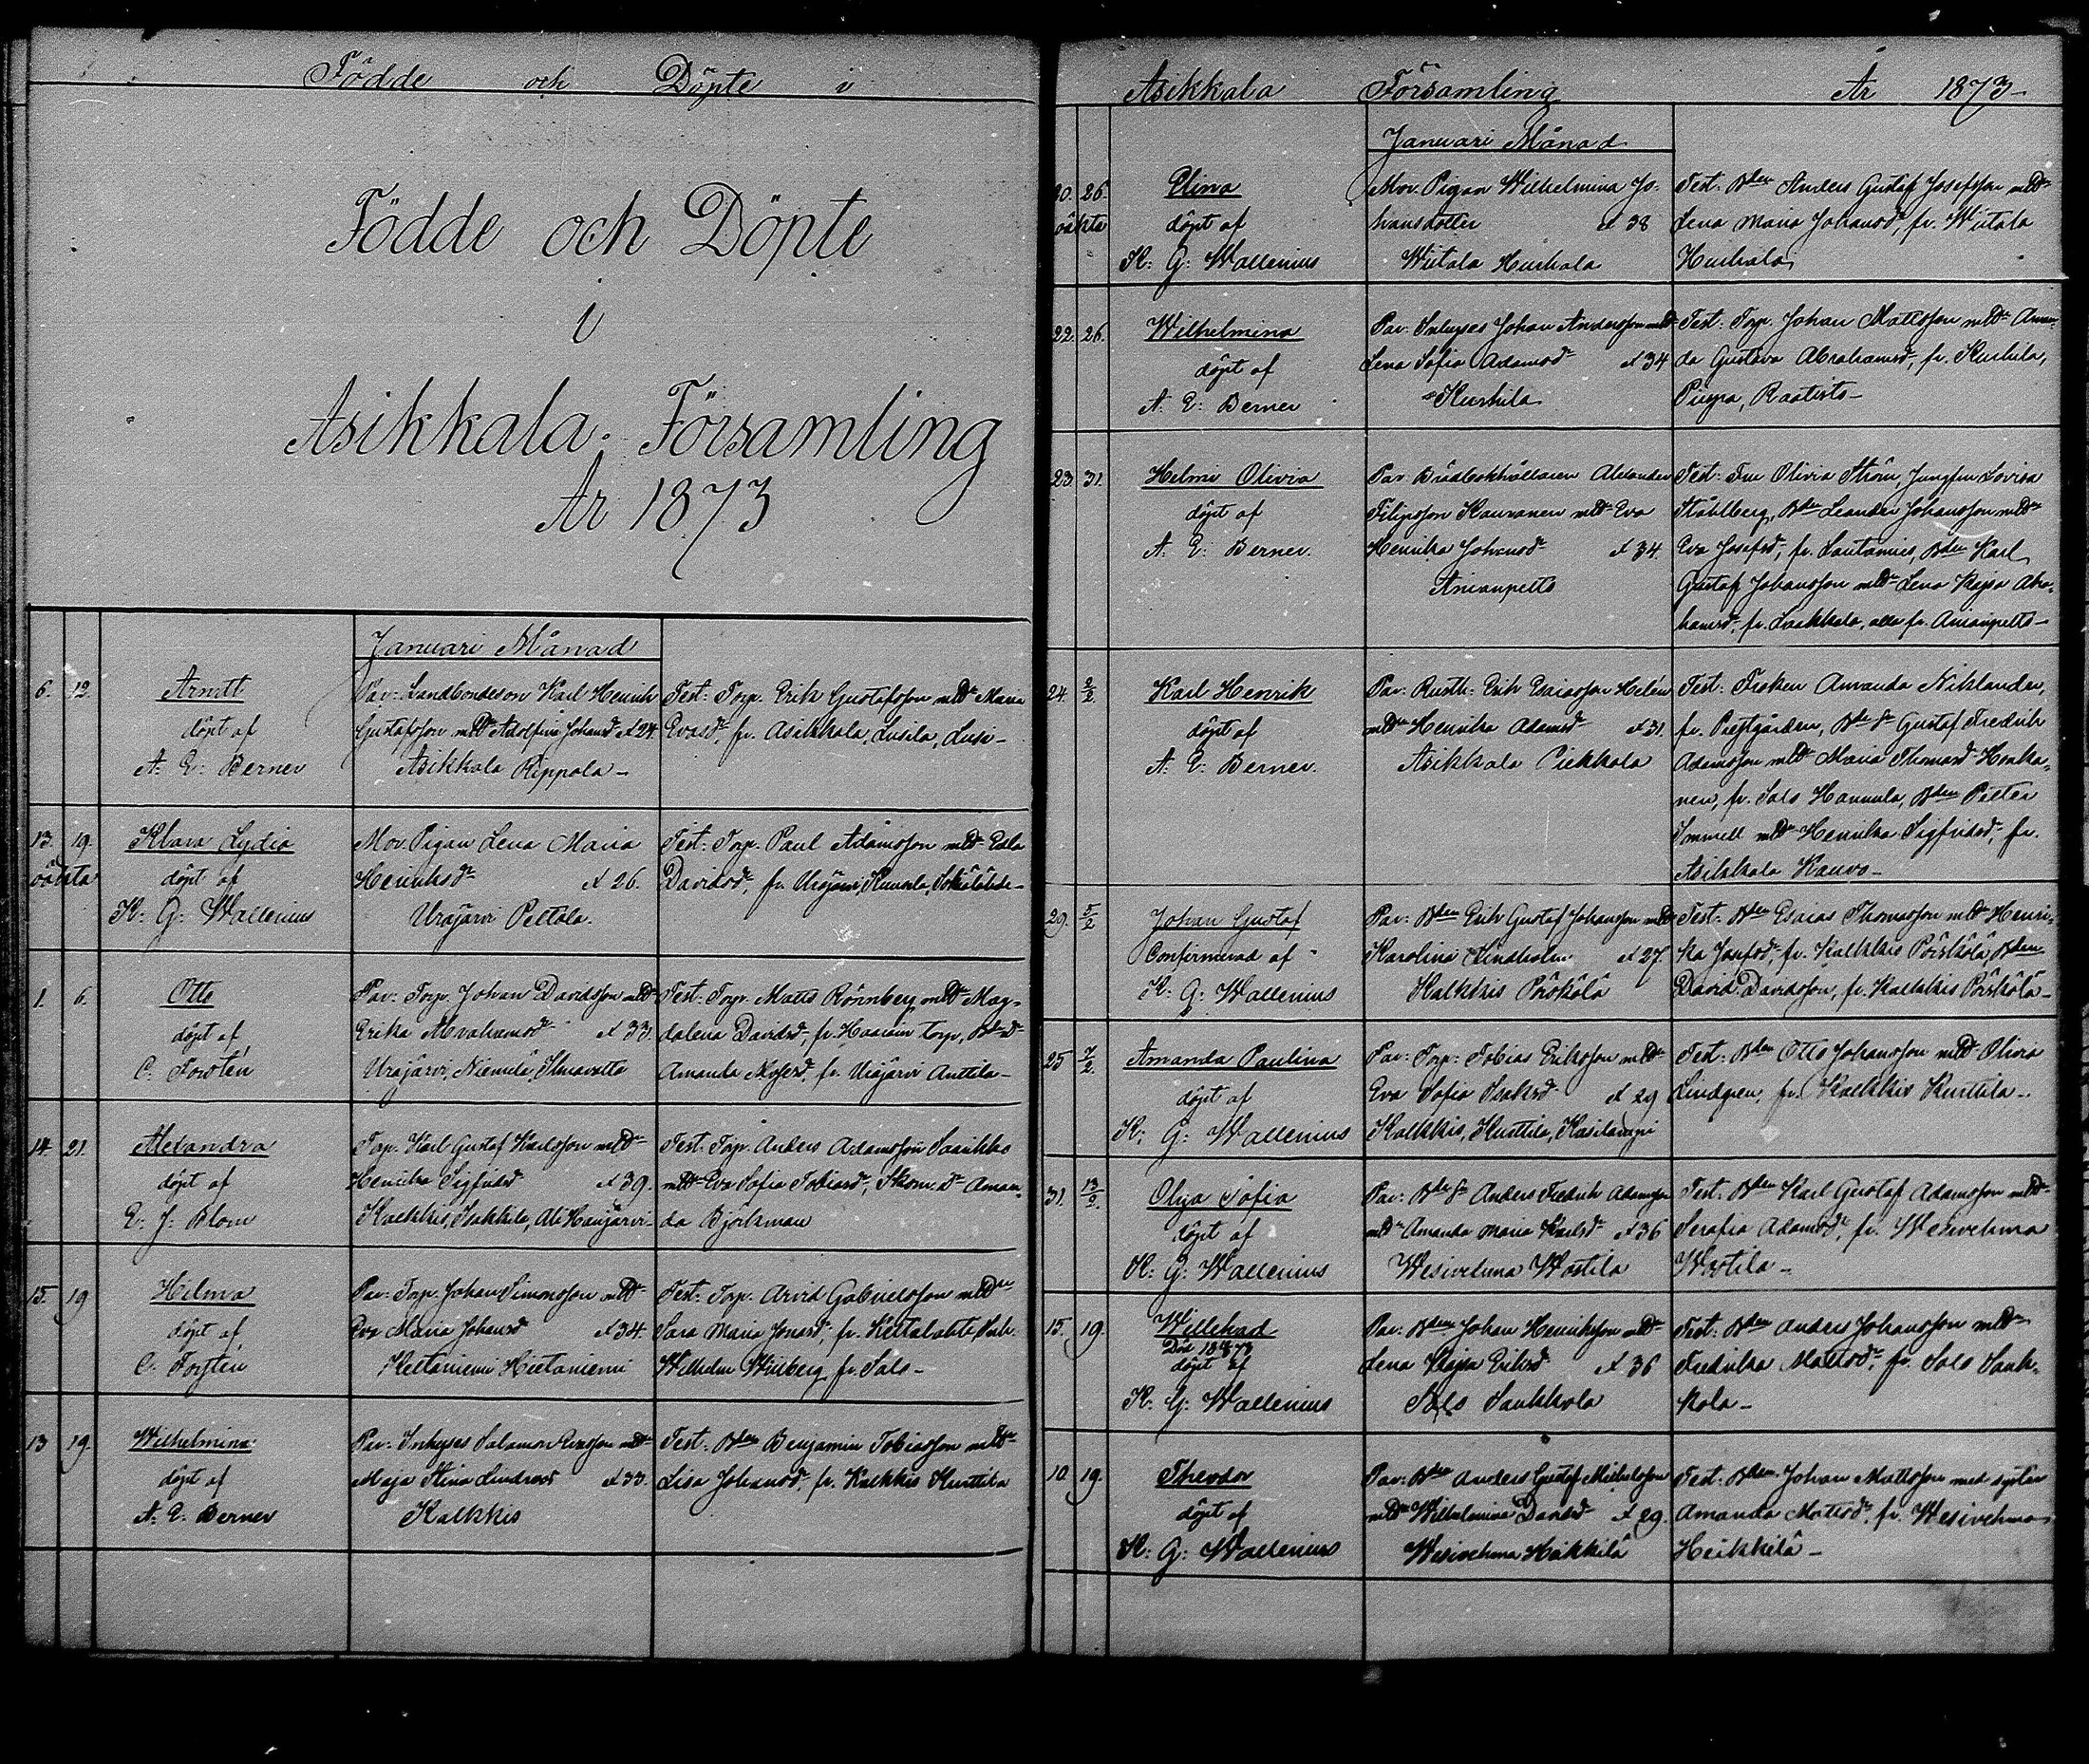 Födde och Döpte i
Födde och Döpte
i
Asikkala Församling
År 1873
Januari Månad
6. 12. Arndt Par: Landbondeson Karl Henrik Test: Torp. Erik Gustafsson m. Maria
döpt af Gustafsson m. Adolfina Johansd. Å 24. Evasd. fr. Asikkala, Lusila, Lusi-
A. E. Berner Asikkala Rippola-
13. 19. Klara Lydia Mor. Pigan Lena Maria Test: Torp. Paul Adamsson m. Edla
oäkta döpt af Henriksdr. Å 26. Davidsd. fr. Urajärvi, Kunsela,
K: G: Wallenius Urajärvi Peltola.
1. 6. Otto Par: Torp. Johan Davidsson m. Test: Torp. Matts Rönnberg m. Mag-
döpt af Erika Abrahamsd. Å 33. dalena Davidsd. fr. torp,
C. Forstén Urajärvi, Niemelä, Amanda fr. Urajärvi Anttila-
14. 21. Alexandra Torp. Karl Gustaf Karlsson m. Test: Torp. Anders Adamsson Saarikko
döpt af Henrika Sigfridsd. Å 39. m. Eva Sofia Tobiasd., Skom. dr. Aman-
E: J: Blom Kalkkis, Isakkila, Ali Haujärvi- da Björkman
15. 19 Hilma Par: Torp. Johan Simonsson m. Test: Torp. Arvid Gabrielsson m.
döpt af Eva Maria Johansd. Å 34. Sara Maria Jonasd., fr.
C. Forstén Hietaniemi Hietaniemi Wilhelm fr. Salo-
13 19. Wilhelmina Par: Inhyses Salomon m. Test: Bden Benjamin Tobiasson m.
döpt af Maja Stina Lindroos Å 33. Lisa Johansd. fr. Kalkkis Kurttila
A. E. Berner Kalkkis
Asikkala Församling År 1873-
Januari Månad
20. 26. Elina Mor. Pigan Wilhelmina Jo- Test: Bden Anders Gustaf Josefsson m.
oäkta döpt af hansdotter Å 38 Lena Maria Johansd., fr. Wiitala
K: G: Wallenius Wiitala Hurkala Hurkala
22. 26. Wilhelmina Par: Inhyses Johan Andersson m. Test: Torp. Johan Mattsson m. Aman-
döpt af Lena Sofia Adamsd. Å 34 da Gustava Abrahamsd., fr. Kurhila,
A. E. Berner Kurhila Raatisto-
23. 31. Helmi Olivia Par Alexander Test: Fru Olivia Ström, Jungfru Lovisa
döpt af Filipsson Kauranen m. Eva Ståhlberg, Bden Leander Johansson m.
A. E. Berner. Henrika Johansd. Å 34. Eva Josefsd., fr. Lautamies, Bden Karl
Anianpelto Gustaf Johansson m. Lena Kajsa Abra-
hamsd., fr. alla fr. Anianpelto-
24. 2/2. Karl Henrik Par: Rusth: Erik Esaiasson Helén Test: Fröken Amanda Niklander,
döpt af m. Henrika Adamsd. Å 31. fr. Prestgården, Bde S. Gustaf Fredrik
A. E. Berner. Asikkala Piekkola Adamsson m. Maria Thomasd. Honka-
nen, fr. Salo Hannula, Bden Petter
Immell m. Henrika Sigfridsd., fr.
Asikkala Kauvo-
29. 5/2 Johan Gustaf Par: Bden Erik Gustaf Johansson m. Test: Bden Esaias Thomasson m. Henri-
Confirmerad af Karolina Lindholm Å 27. ka Josefsd., fr. Kalkkis Pörskölä, Bden
K: G: Wallenius Kalkkis Pörskölä David Davidsson, fr. Kalkkis Pörskölä-
25 7/2. Amanda Paulina Par: Torp: Tobias Eriksson m. Test: Bden Otto Johansson m. Olivia
döpt af Eva Sofia Isaksd. Å 29 Lindgren, fr. Kalkkis Kurttila-
K: G: Wallenius Kalkkis, Kurttila,
31. 13/2. Olga Sofia Par: Bde S. Anders Fredrik Adamsson Test: Bden Karl Gustaf Adamsson m.
döpt af m. Amanda Maria Karlsd. Å 36 Serafia Adamsd., fr. Wesivehma
K: G: Wallenius Wesivehma Wostila Wostila-
15. 19. Willehad Par: Bden Johan Henriksson m. Test: Bden Anders Johansson m.
Död 18 73
döpt af Lena Kajsa Eriksd. Å 36 Fredrika Mattsd., fr. Salo Sauk-
K: G: Wallenius Salo Saukkola kola-
10 19. Theodor Par: Bden Anders Gustaf Mickelsson Test: Bden Johan Mattsson med systern
döpt af m. Wilhelmina Davidsd. Å 29. Amanda Mattsd., fr. Wesivehma
K: G: Wallenius Wesivehma Heikkilä Heikkilä-